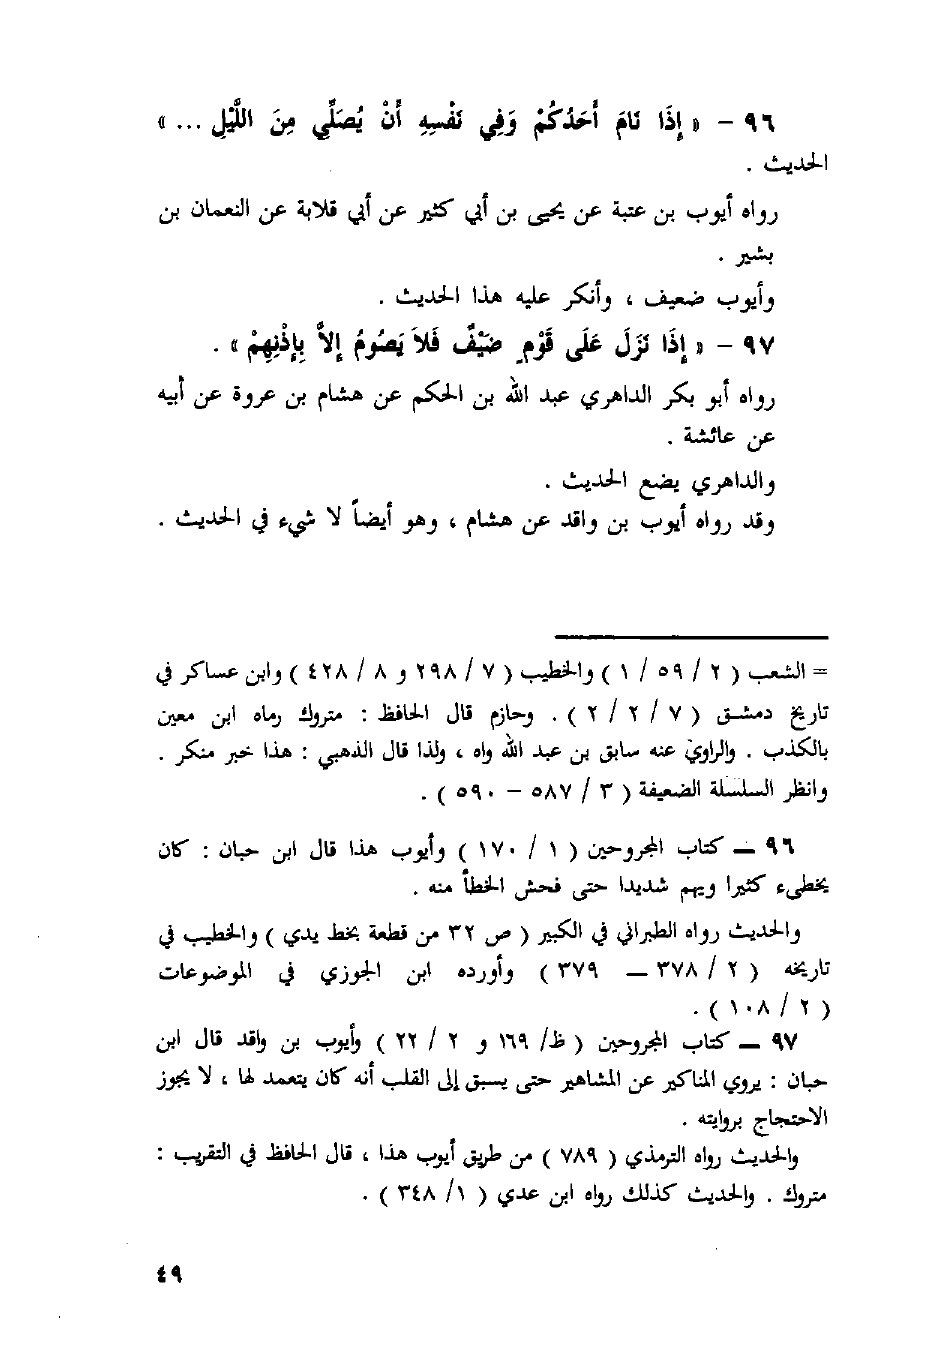 ٩٦ – « إِذَا نَامَ أَحَدُكُمْ وَفِي نَفْسِهِ أَنْ يُصَلِّي مِنَ اللَّيْلِ ... »
الحديث .
رواه أيوب بن عتبة عن يحيى بن أبي كثير عن أبي قلابة عن النعمان بن
بشير .
وأيوب ضعيف ، وأنكر عليه هذا الحديث .
٩٧ – « إِذَا نَزَلَ عَلَى قَوْمٍ ضَيْفٌ فَلاَ يَصُومُ إِلاَّ بِإِذْنِهِمْ » .
رواه أبو بكر الداهري عبد الله بن الحكم عن هشام بن عروة عن أبيه
عن عائشة .
والداهري يضع الحديث .
وقد رواه أيوب بن واقد عن هشام ، وهو أيضاً لا شيء في الحديث .
= الشعب ( ٢ / ٥٩ / ١ ) والخطيب ( ٧ / ٢٩٨ و ٨ / ٤٢٨ ) وابن عساكر في
تاريخ دمشق ( ٧ / ٢ / ٢ ) . وحازم قال الحافظ : متروك رماه ابن معين
بالكذب . والراوي عنه سابق بن عبد الله واه ، ولذا قال الذهبي : هذا خبر منكر .
وانظر السلسلة الضعيفة ( ٣ / ٥٨٧ – ٥٩٠ ) .
٩٦ — كتاب المجروحين ( ١ / ١٧٠ ) وأيوب هذا قال ابن حبان : كان
يخطيء كثيرا ويهم شديدا حتى فحش الخطأ منه .
والحديث رواه الطبراني في الكبير ( ص ٣٢ من قطعة بخط يدي ) والخطيب في
تاريخه ( ٢ / ٣٧٨ — ٣٧٩ ) وأورده ابن الجوزي في الموضوعات
( ٢ / ١٠٨ ) .
٩٧ — كتاب المجروحين ( ظ/ ١٦٩ و ٢ / ٢٢ ) وأيوب بن واقد قال ابن
حبان : يروي المناكير عن المشاهير حتى يسبق إلى القلب أنه كان يتعمد لها ، لا يجوز
الاحتجاج بروايته .
والحديث رواه الترمذي ( ٧٨٩ ) من طريق أيوب هذا ، قال الحافظ في التقريب :
متروك . والحديث كذلك رواه ابن عدي ( ١/ ٣٤٨ ) .
٤٩